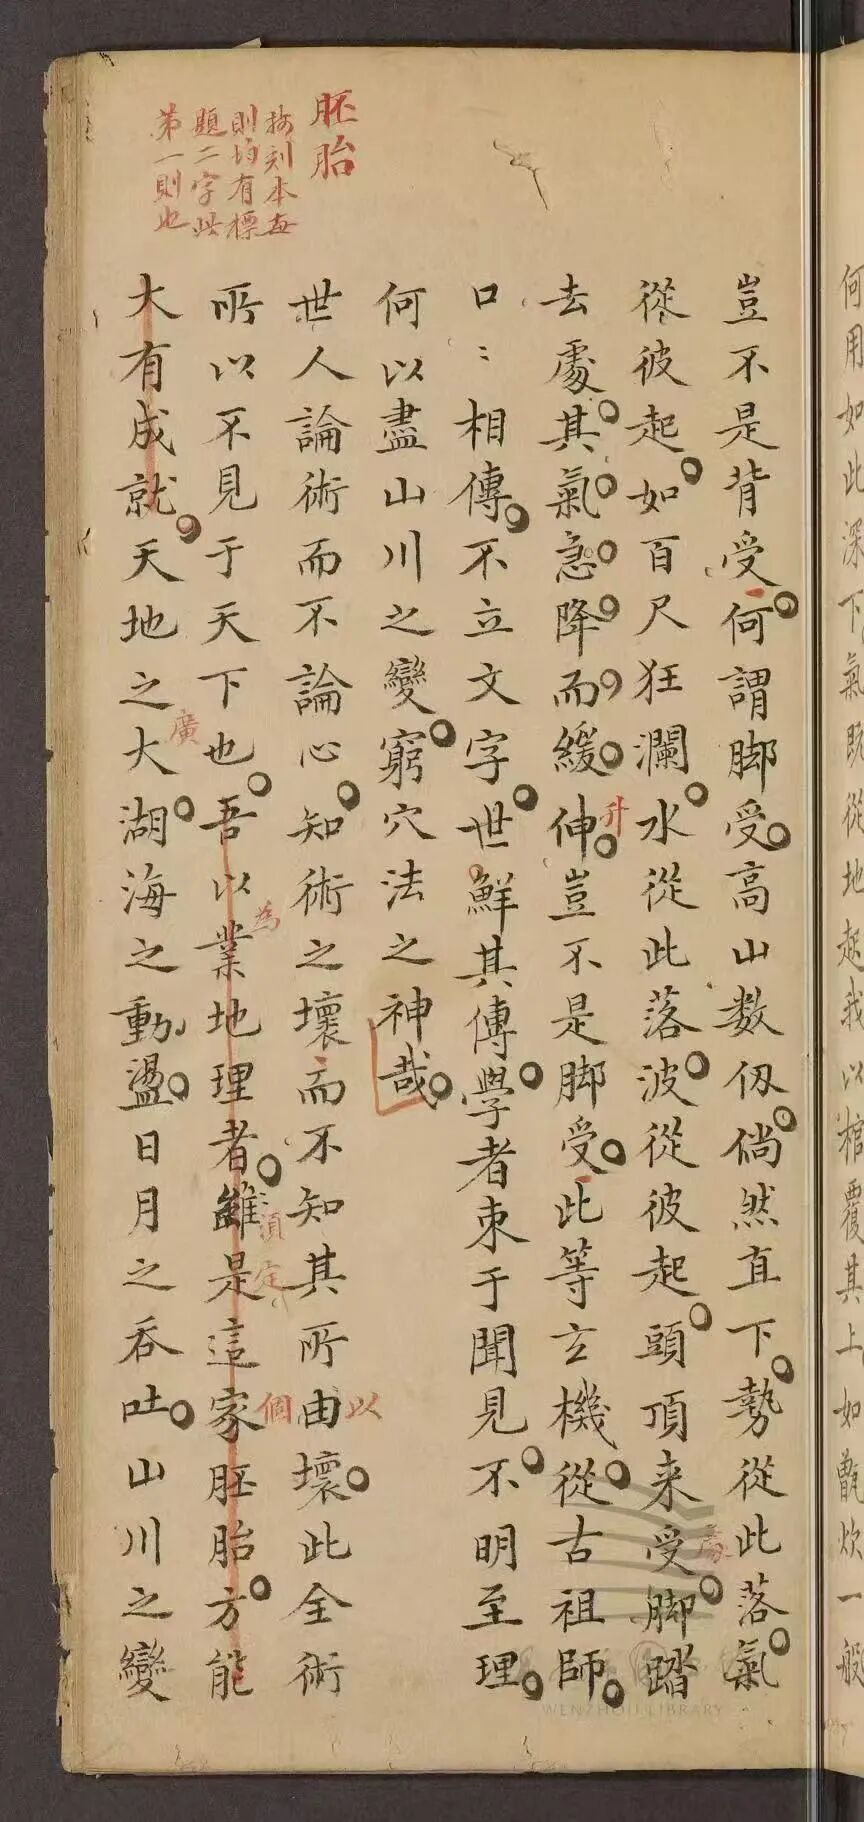 何用如此深下氣既從地起我以棺覆其上如甑炊一般
豈不是背受何謂脚受高山数仭倘然直下勢從此落氣
從彼起如百尺狂瀾水從此落波從彼起頭頂来受脚踏
去處其氣急降而緩伸豈不是脚受此等玄機從古祖師
升
口〻相傳不立文字世鮮其傳學者束于聞見不明至理
何以盡山川之變窮穴法之神哉
世人論術而不論心知術之壞而不知其所由壞此全術
以
所以不見于天下也吾以業地理者雖是這家胚胎方能
為
須定
個
大有成就天地之大湖海之動盪日月之吞吐山川之變
廣
胚胎
按刻本每
則均有標
題二字此
第一則也
WENZHOU LIBRARY